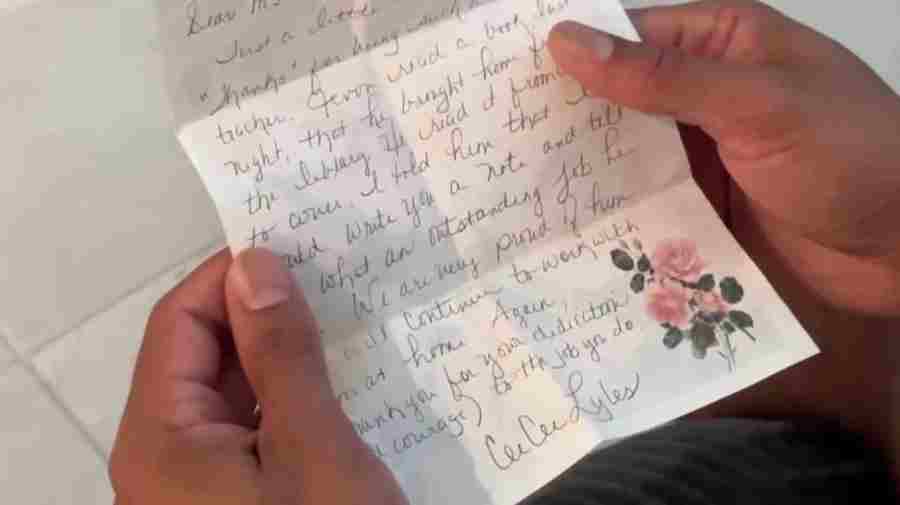 Dear Ms
Just a little
"thanks" for being such a
teacher. Jevon read a book last
night, that he brought home from
the library. He read it from
to cover. I told him that I
would write you a note and tell
what an outstanding job he
We are very proud of him
will continue to work with
at home. Again,
thank you for your dedication
courage) to the job you do
CeeCee Lyles